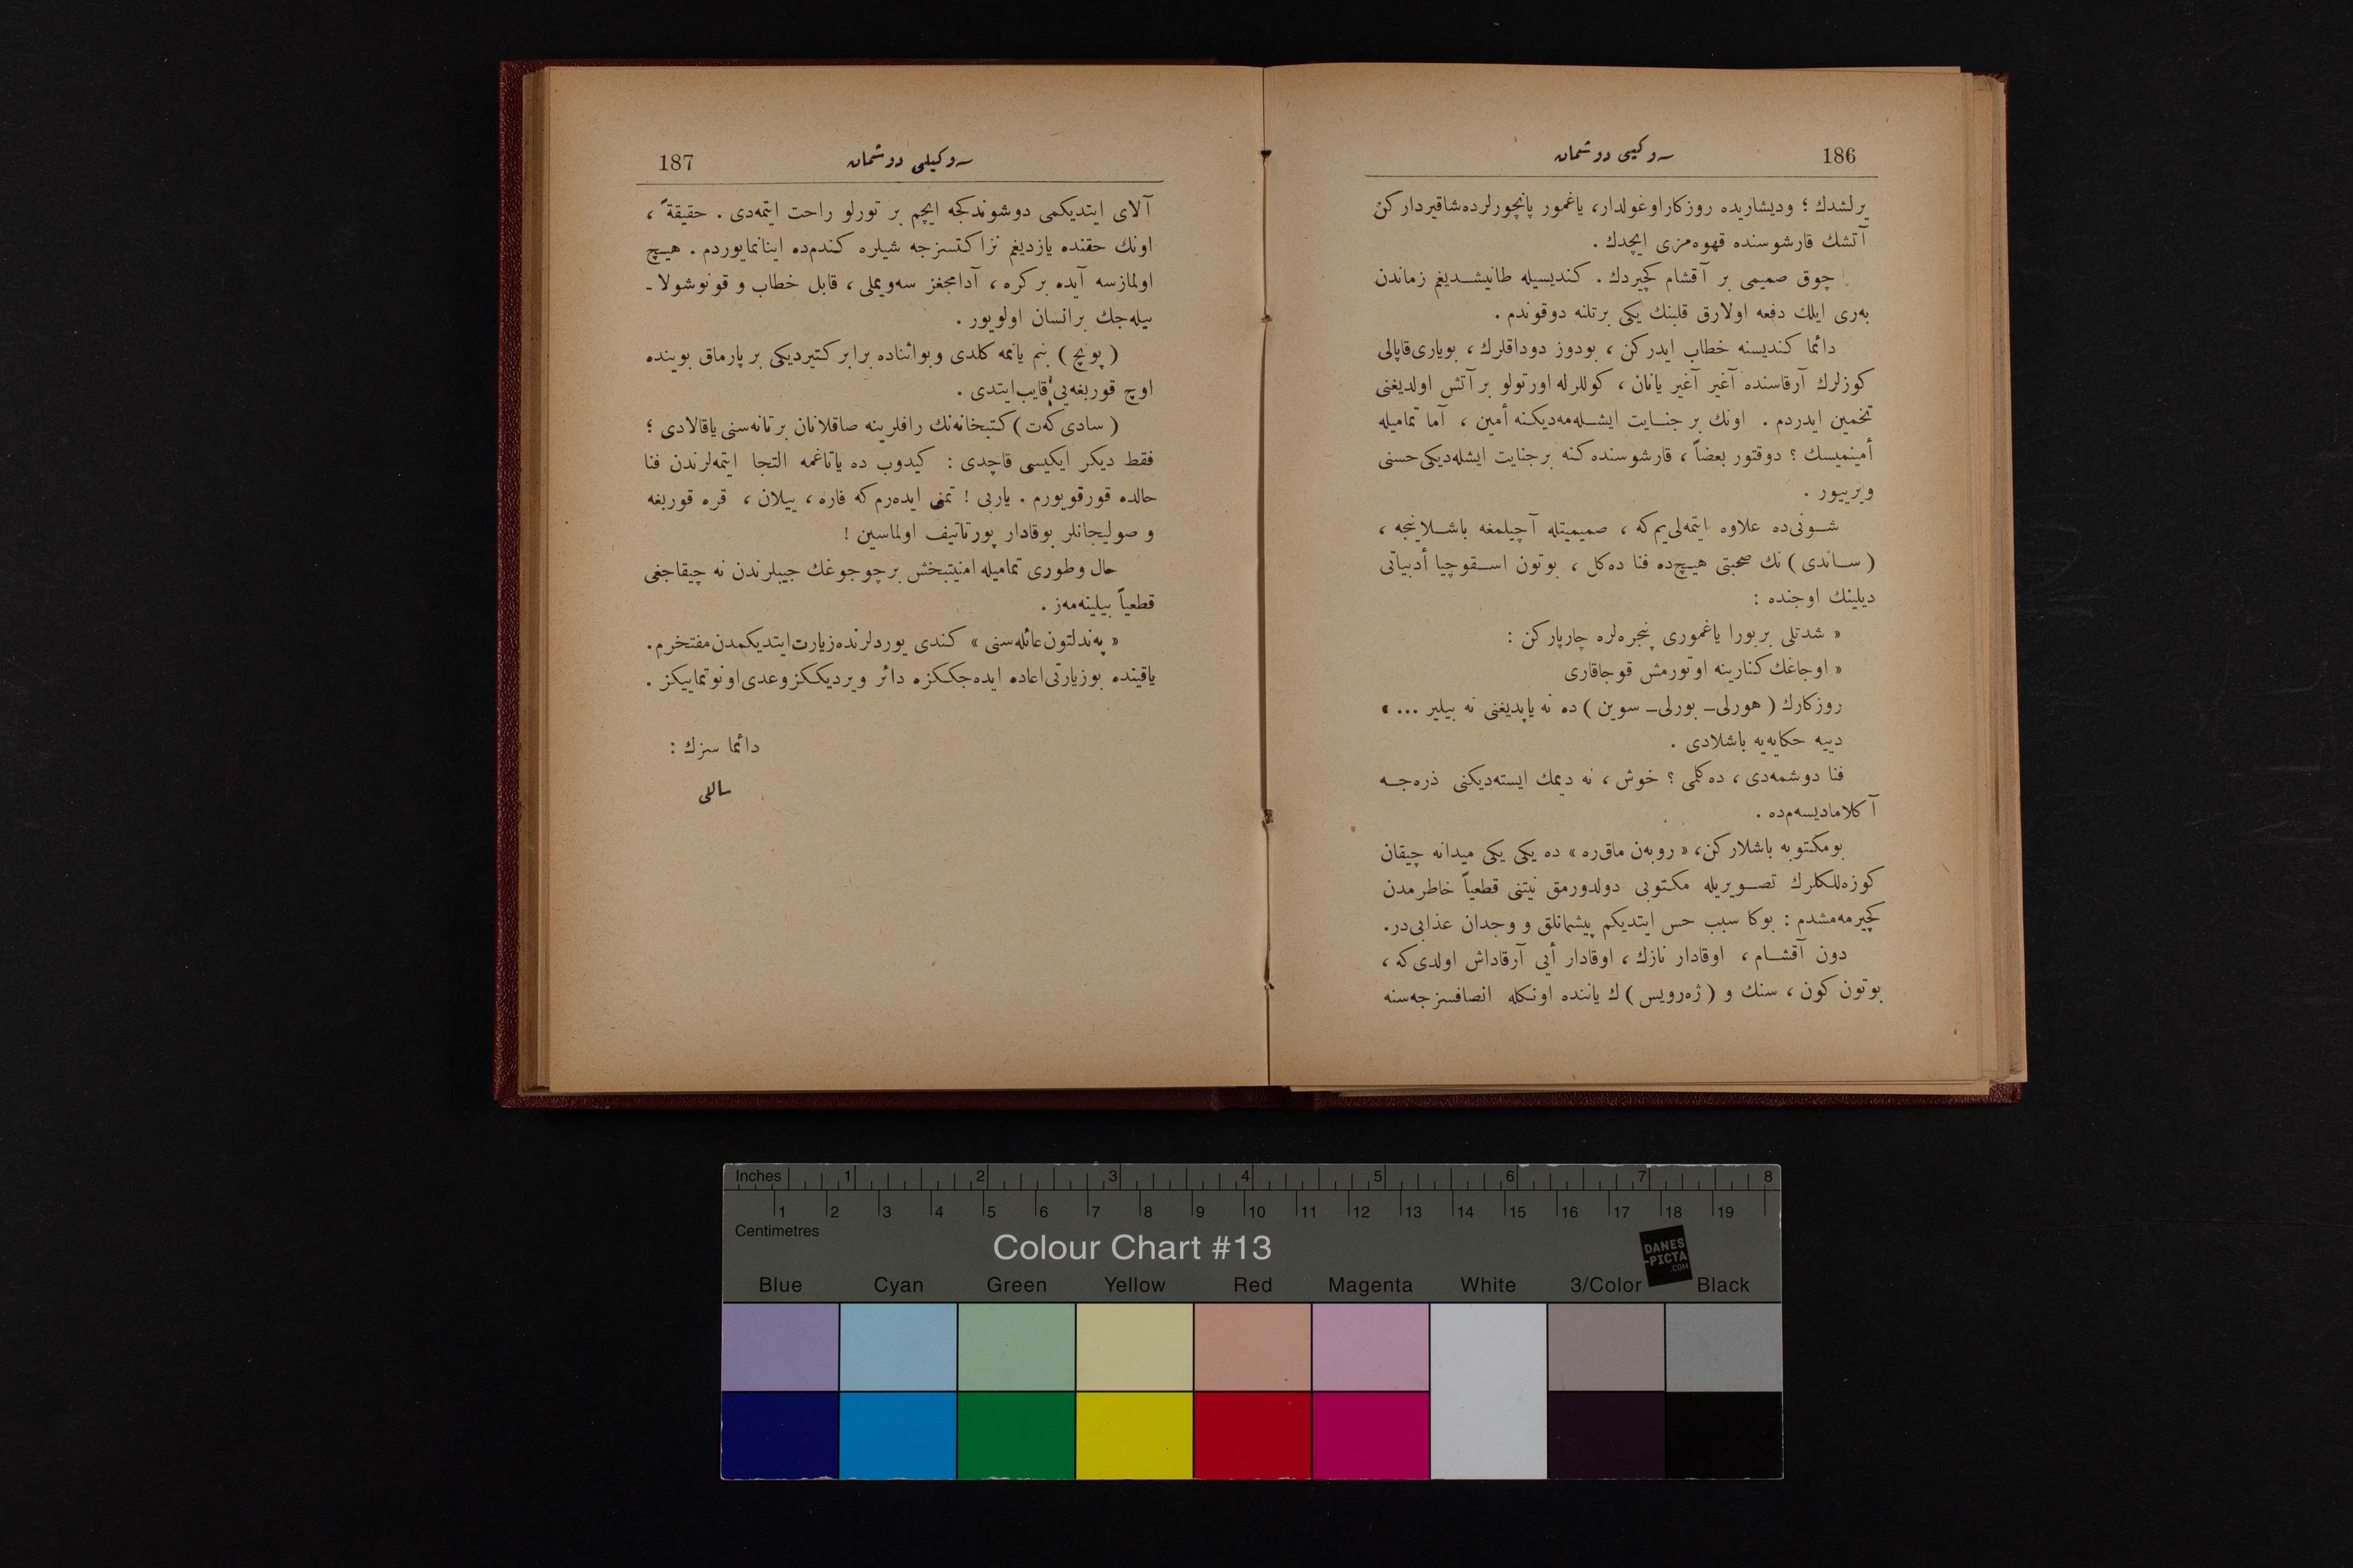 186
سوكیی دوشمان
یرلشدك ؛ ودیشاریده روزكاراوغولدار، یاغمور پانچورلرده‌شاقیرداركن
آتشك قارشوسنده قهوه‌مزی ایچدك .
چوق صمیمی بر آقشام كچیردك . كندیسیله طانیشدیغم زماندن
به‌ری ایلك دفعه اولارق قلبنك یكی برتلنه دوقوندم .
دائما كندیسنه خطاب ایدركن ، بودوز دوداقلرك ، بویاری‌قاپالی
كوزلرك آرقاسنده آغیر آغیر یانان ، كوللرله اورتولو بر آتش اولدیغنی
تخمین ایدردم . اونك بر جنایت ایشله‌مه‌دیكنه أمین ، آما تمامیله
أمینمیسك ؟ دوقتور بعضاً ، قارشوسنده‌كنه برجنایت ایشله‌دیكی حسنی
ویرییور .
شونی‌ده علاوه ایتمه‌لی‌یم كه ، صمیمیتله آچیلمغه باشلاینجه ،
( ساندی ) نك صحبتی هیچ‌ده فنا ده‌كل ، بوتون اسقوچیا أدبیاتی
دیلینك اوجنده :
« شدتلی بربورا یاغموری پنجره‌لره چارپاركن :
« اوجاغك كنارینه اوتورمش قوجاقاری
روزكارك ( هورلی – بورلی – سوین ) ده نه یاپدیغنی نه بیلیر ... »
دییه حكایه‌یه باشلادی .
فنا دوشمه‌دی ، ده‌كلمی ؟ خوش ، نه دیمك ایسته‌دیكنی ذره‌جه
آكلامادیسه‌م‌ده .
بومكتوبه باشلاركن، « روبه‌ن ماق‌ره » ده یكی یكی میدانه چیقان
كوزه‌للكلرك تصویریله مكتوبی دولدورمق نیتنی قطعیاً خاطرمدن
كچیرمه‌مشدم : بوكا سبب حس ایتدیكم پیشمانلق و وجدان عذابی‌در.
دون آقشام ، اوقادار نازك ، اوقادار أیی آرقاداش اولدی‌كه ،
بوتون كون ، سنك و ( ژه‌رویس ) ك یاننده اونكله انصافسزجه‌سنه
187
سوكیلی دوشمان
آلای ایتدیكمی دوشوندكجه ایچم بر تورلو راحت ایتمه‌دی . حقیقةً ،
اونك حقنده یازدیغم نزاكتسزجه شیلره كندم‌ده اینانمایوردم . هیچ
اولمازسه آیده بركره ، آدامجغز سه‌ویملی ، قابل خطاب و قونوشولا ـ
بیله‌جك برانسان اولویور .
( پونچ ) بنم یانمه كلدی وبواثناده برابر كتیردیكی بر پارماق بوینده
اوچ قوربغه‌یی قایب‌ایتدی .
( سادی كه‌ت ) كتبخانه‌نك رافلرینه صاقلانان برتانه‌سنی یاقالادی ؛
فقط دیكر ایكیسی قاچدی : كیدوب ده یاتاغمه التجا ایتمه‌لرندن فنا
حالده قورقویورم . یاربی ! تمنی ایده‌رم كه فاره ، ییلان ، قره قوربغه
و صولیجانلر بوقادار پورتاتیف اولماسین !
حال وطوری تمامیله امنیتبخش برچوجوغك جیبلرندن نه چیقاجغی
قطعیاً بیلینه‌مه‌ز .
« په‌ندلتون‌عائله‌سنی » كندی یوردلرنده‌زیارت‌ایتدیكمدن‌مفتخرم.
یاقینده بوزیارتی‌اعاده ایده‌جككزه دائر ویردیككزوعدی‌اونوتماییكز .
دائما سزك :
ساللی
Inches 1 2 3 4 5 6 7 8
1 2 3 4 5 6 7 8 9 10 11 12 13 14 15 16 17 18 19
Centimetres
Colour Chart #13
DANES
-PICTA
.COM
Blue Cyan Green Yellow Red Magenta White 3/Color Black